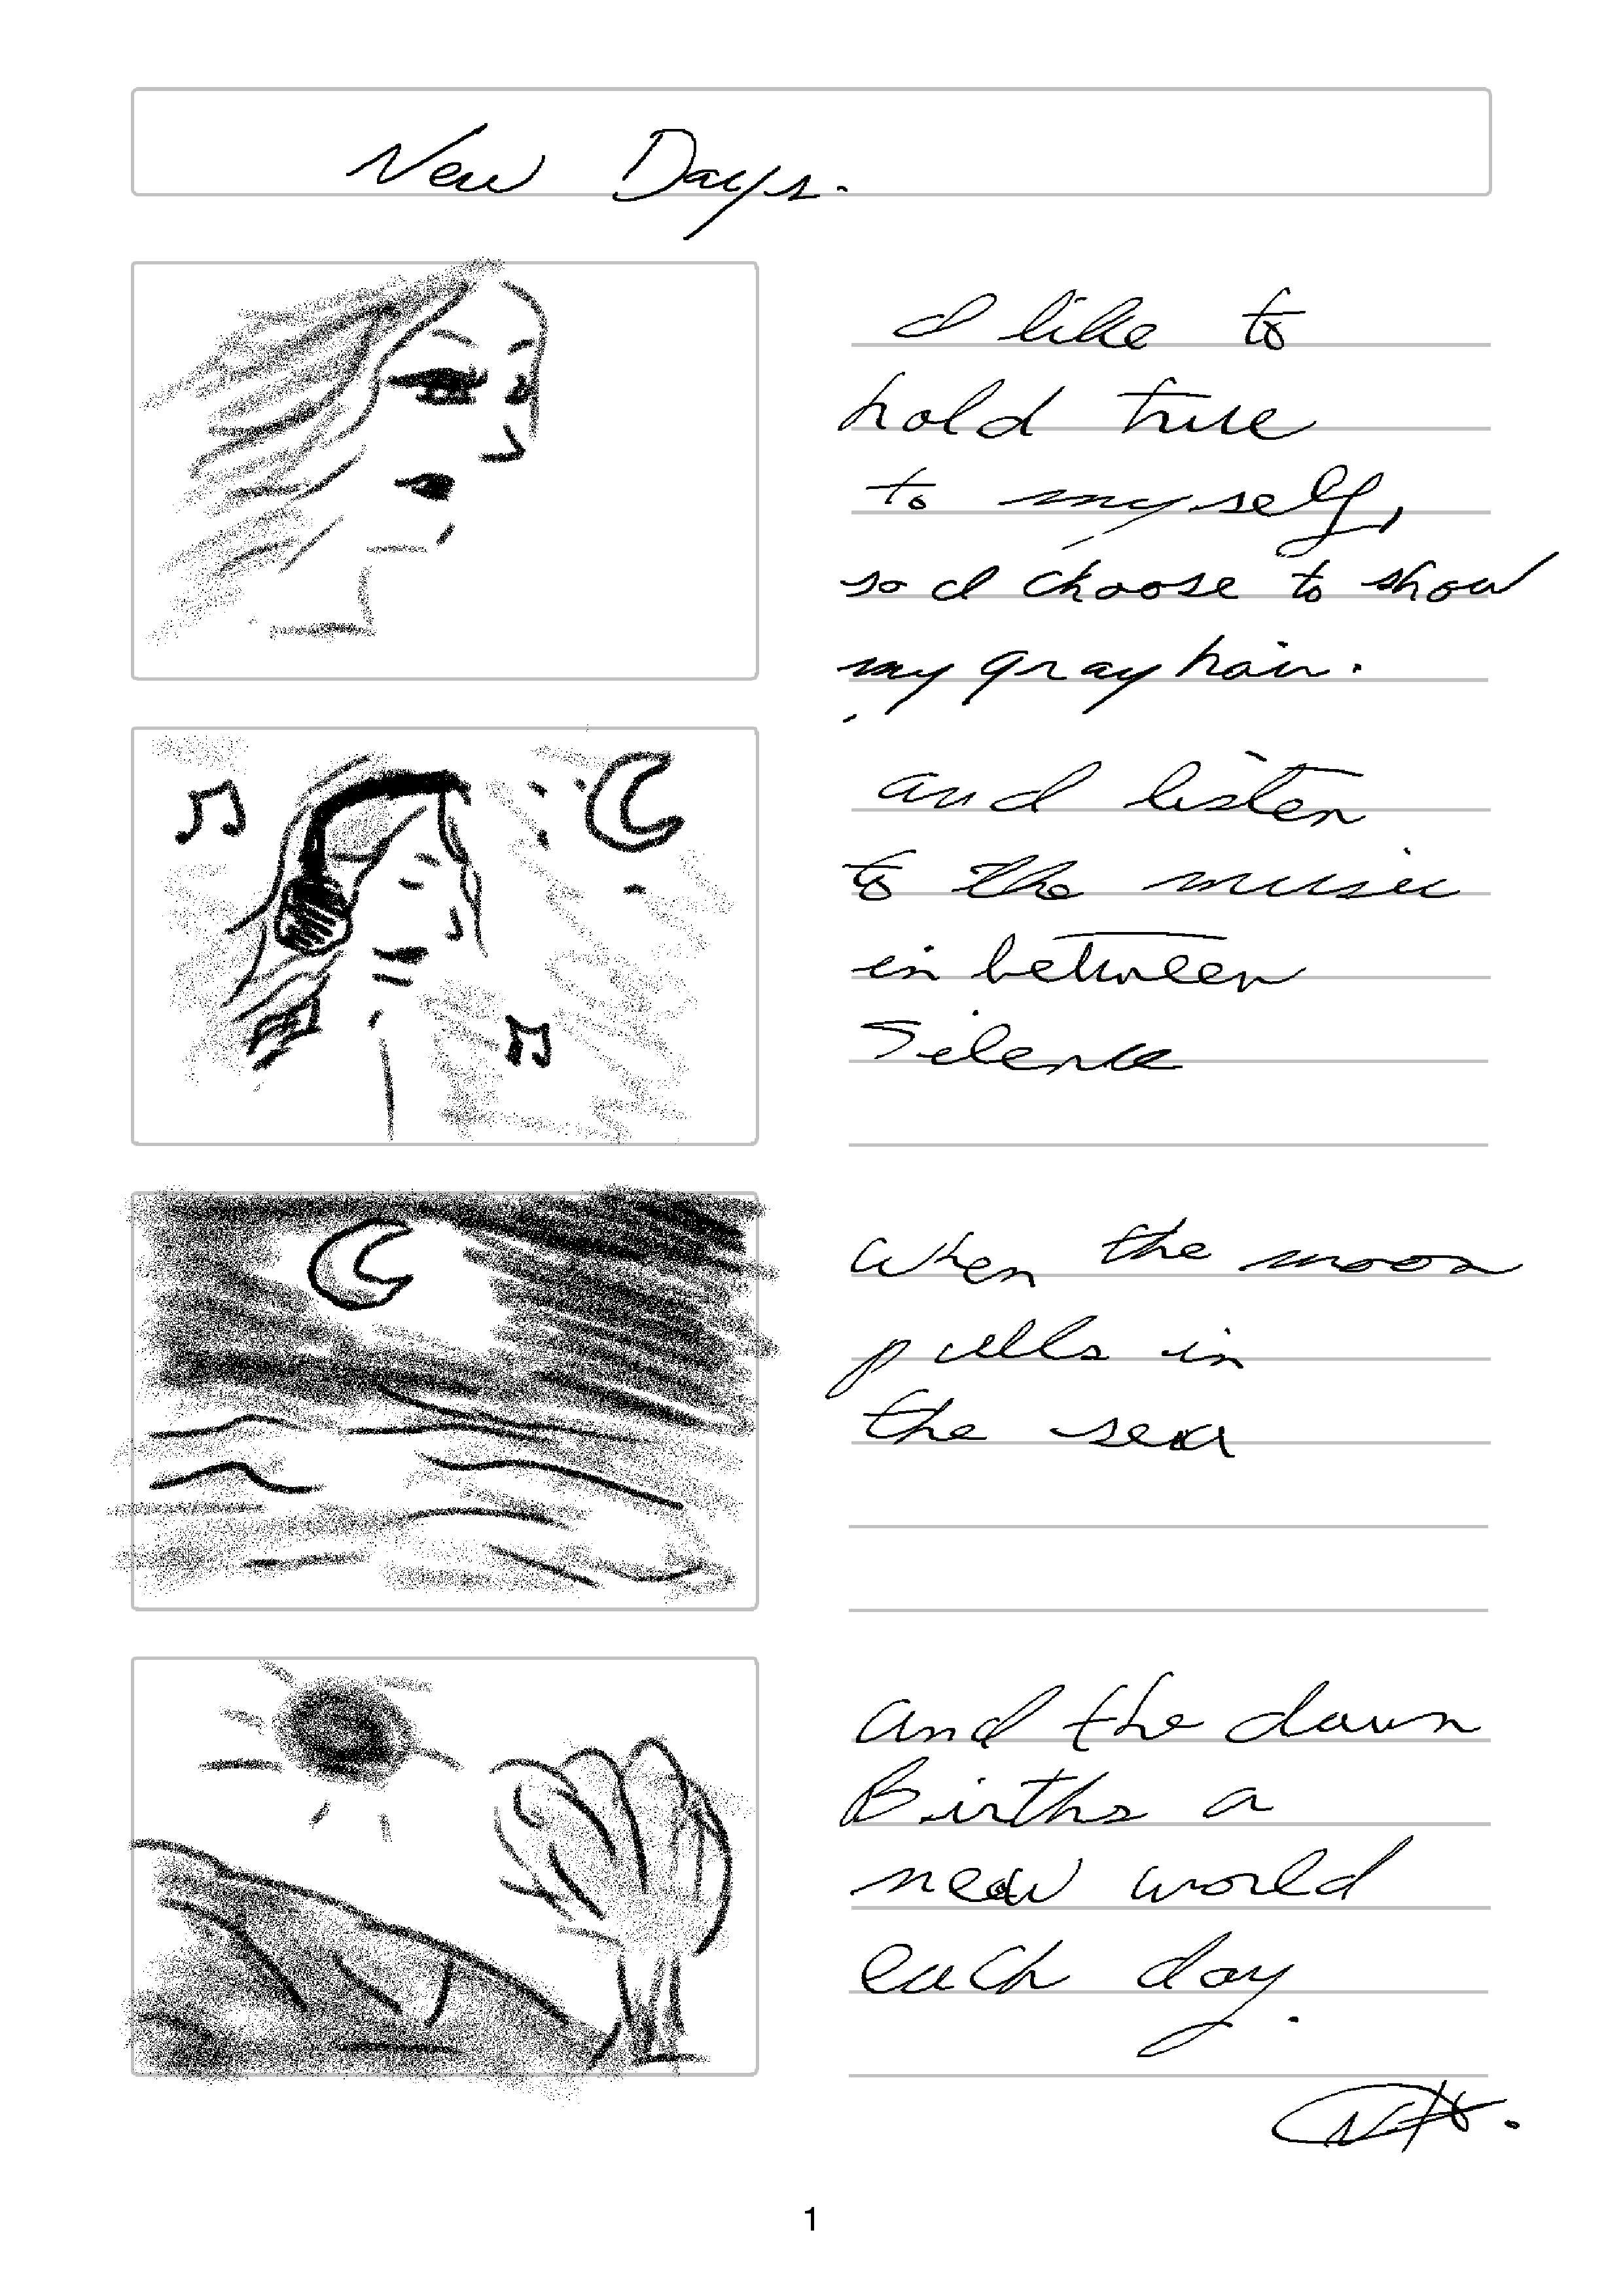 New Days.
I like to
hold true
to myself,
so I choose to show
my gray hair.
and listen
to the music
in between
Silence
when the moon
pulls in
the sea
and the dawn
Births a
new world
each day.
1